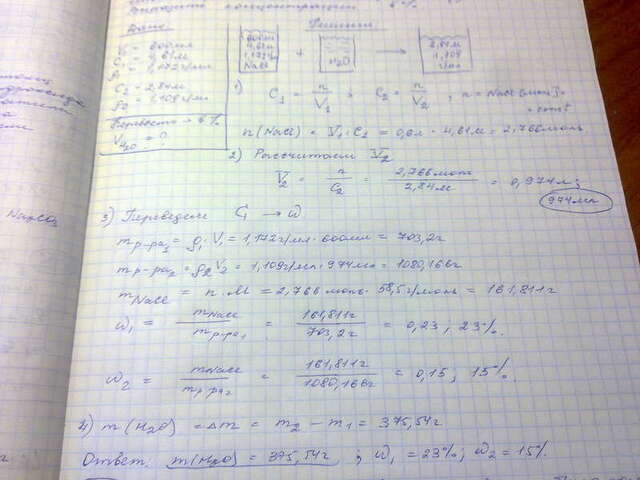 Дано:
Решение
V₁ = 600мл
C₁ = 4,61м
ρ₁ = 1,172г/мл
C₂ = 2,84м
ρ₂ = 1,109г/мл
Перевести → в %
V H₂O = ?
600мл
4,61м
1,172г
NaCl
+
H₂O
→
2,84м
1,109
г/мл
1) C₁ = n/V₁ ; C₂ = n/V₂ ; n = NaCl
const
n(NaCl) = V₁·C₁ = 0,6л · 4,61м = 2,766моль
2) Рассчитаем V₂
V₂ = n/C₂ = 2,766моль/2,84м = 0,974л;
974мл
3) Переведем C₁ → ω
m р-ра₁ = ρ₁·V₁ = 1,172г/мл · 600мл = 703,2г
m р-ра₂ = ρ₂·V₂ = 1,109г/мл · 974мл = 1080,166г
m NaCl = n · M = 2,766моль · 58,5г/моль = 161,811г
ω₁ = m NaCl/m р-ра₁ = 161,811г/703,2г = 0,23; 23%.
ω₂ = m NaCl/m р-ра₂ = 161,811г/1080,166г = 0,15; 15%.
4) m(H₂O) = Δm = m₂ - m₁ = 375,54г
Ответ: m(H₂O) = 375,54г ; ω₁ = 23%; ω₂ = 15%.